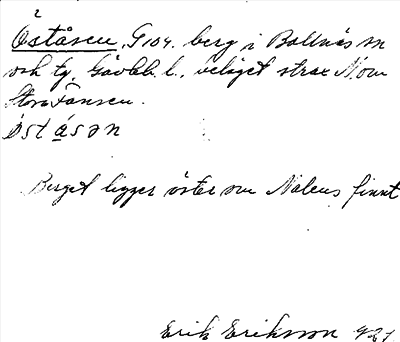 Öståsen, G 104. berg i Bollnäs sn
och tg, Gävleb. l., beläget strax N om
Stora Fansen.
östásən
Berget ligger öster om Nolens finnt
Erik Eriksson 921.